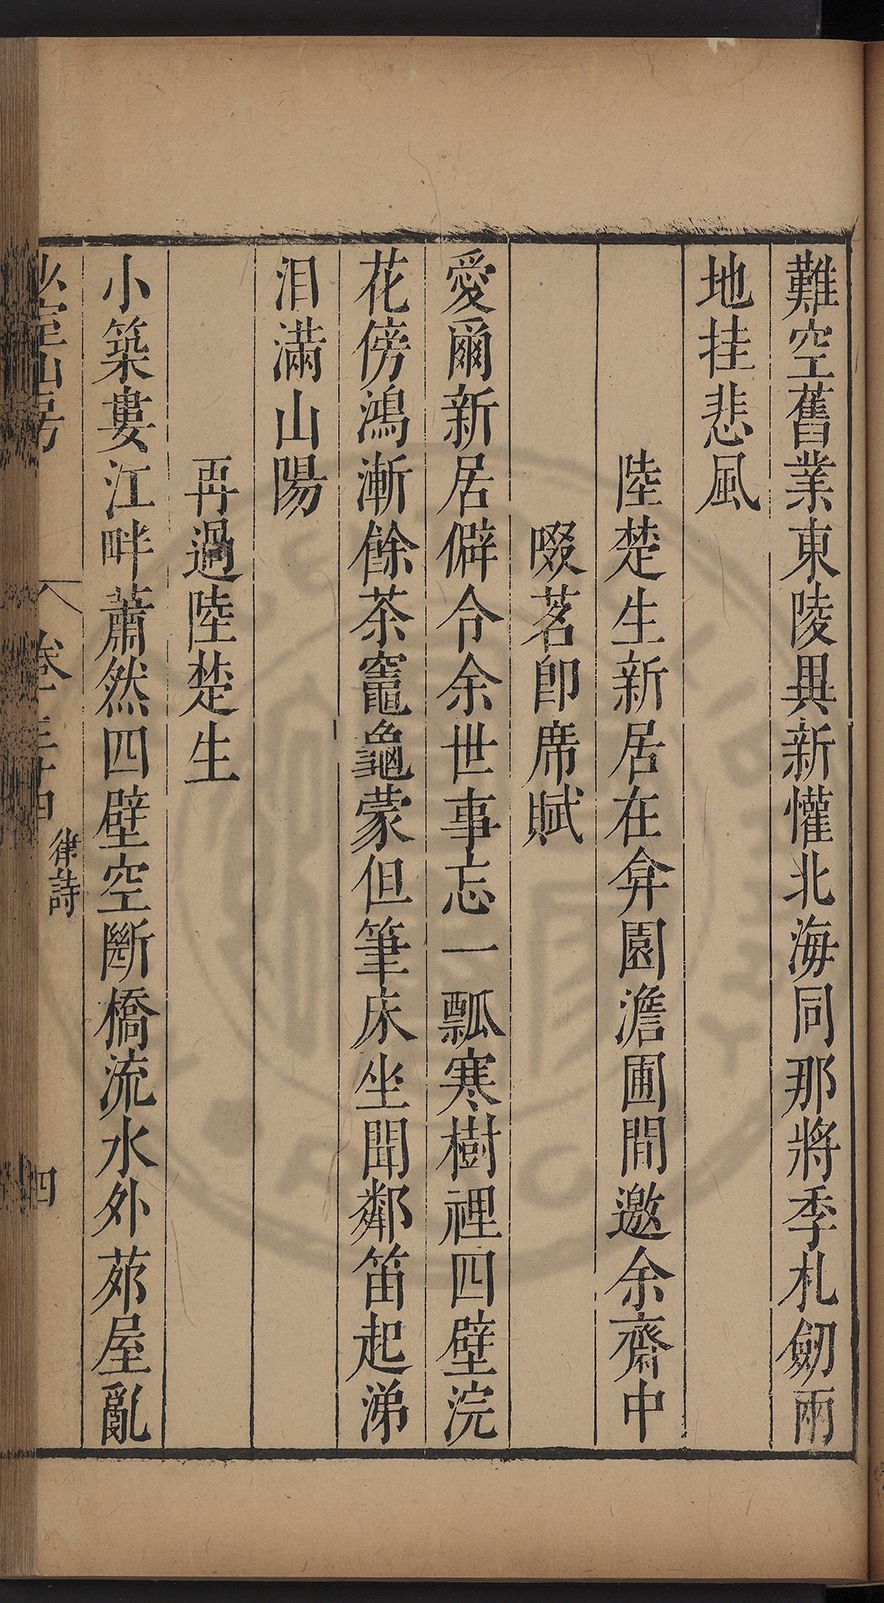 難空舊業東陵興新懽北海同那將季札劒兩
地挂悲風
陸楚生新居在弇園澹圃間邀余齋中
啜茗即席賦
愛爾新居僻令余世事忘一瓢寒樹裡四壁浣
花傍鴻漸餘茶竈龜蒙但筆床坐聞鄰笛起涕
泪滿山陽
再過陸楚生
小築婁江畔蕭然四壁空斷橋流水外茆屋亂
山房
卷三十四
律詩
四